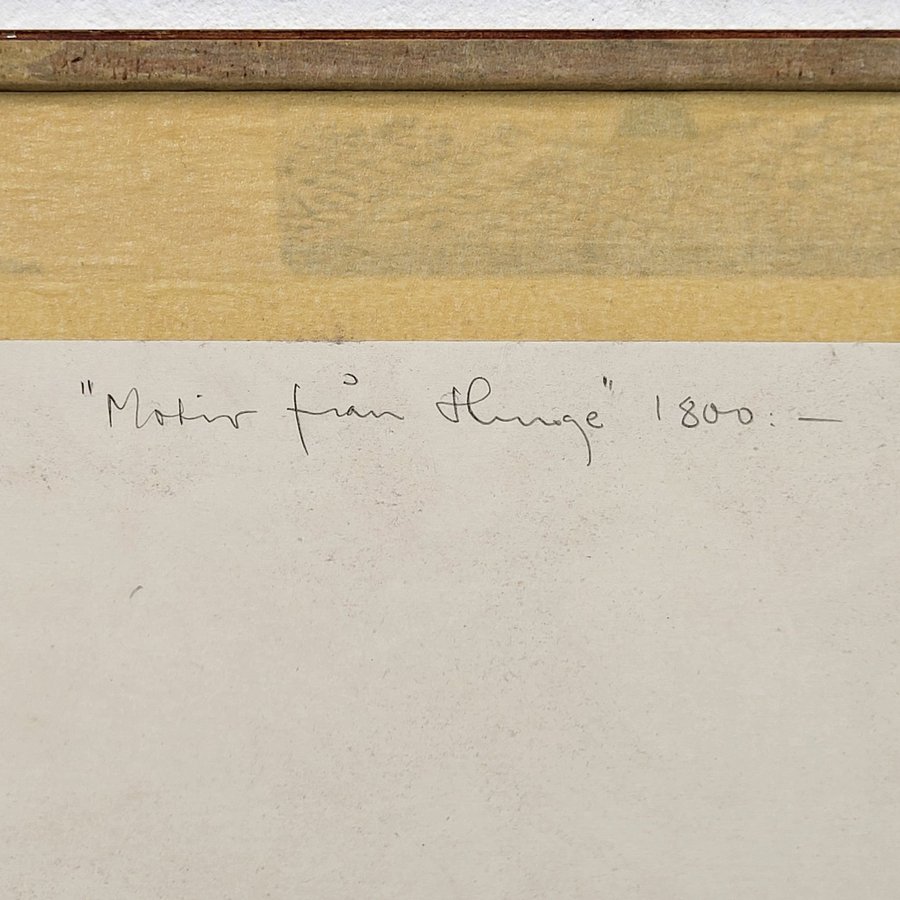 "Motiv från Hunge" 1800:-